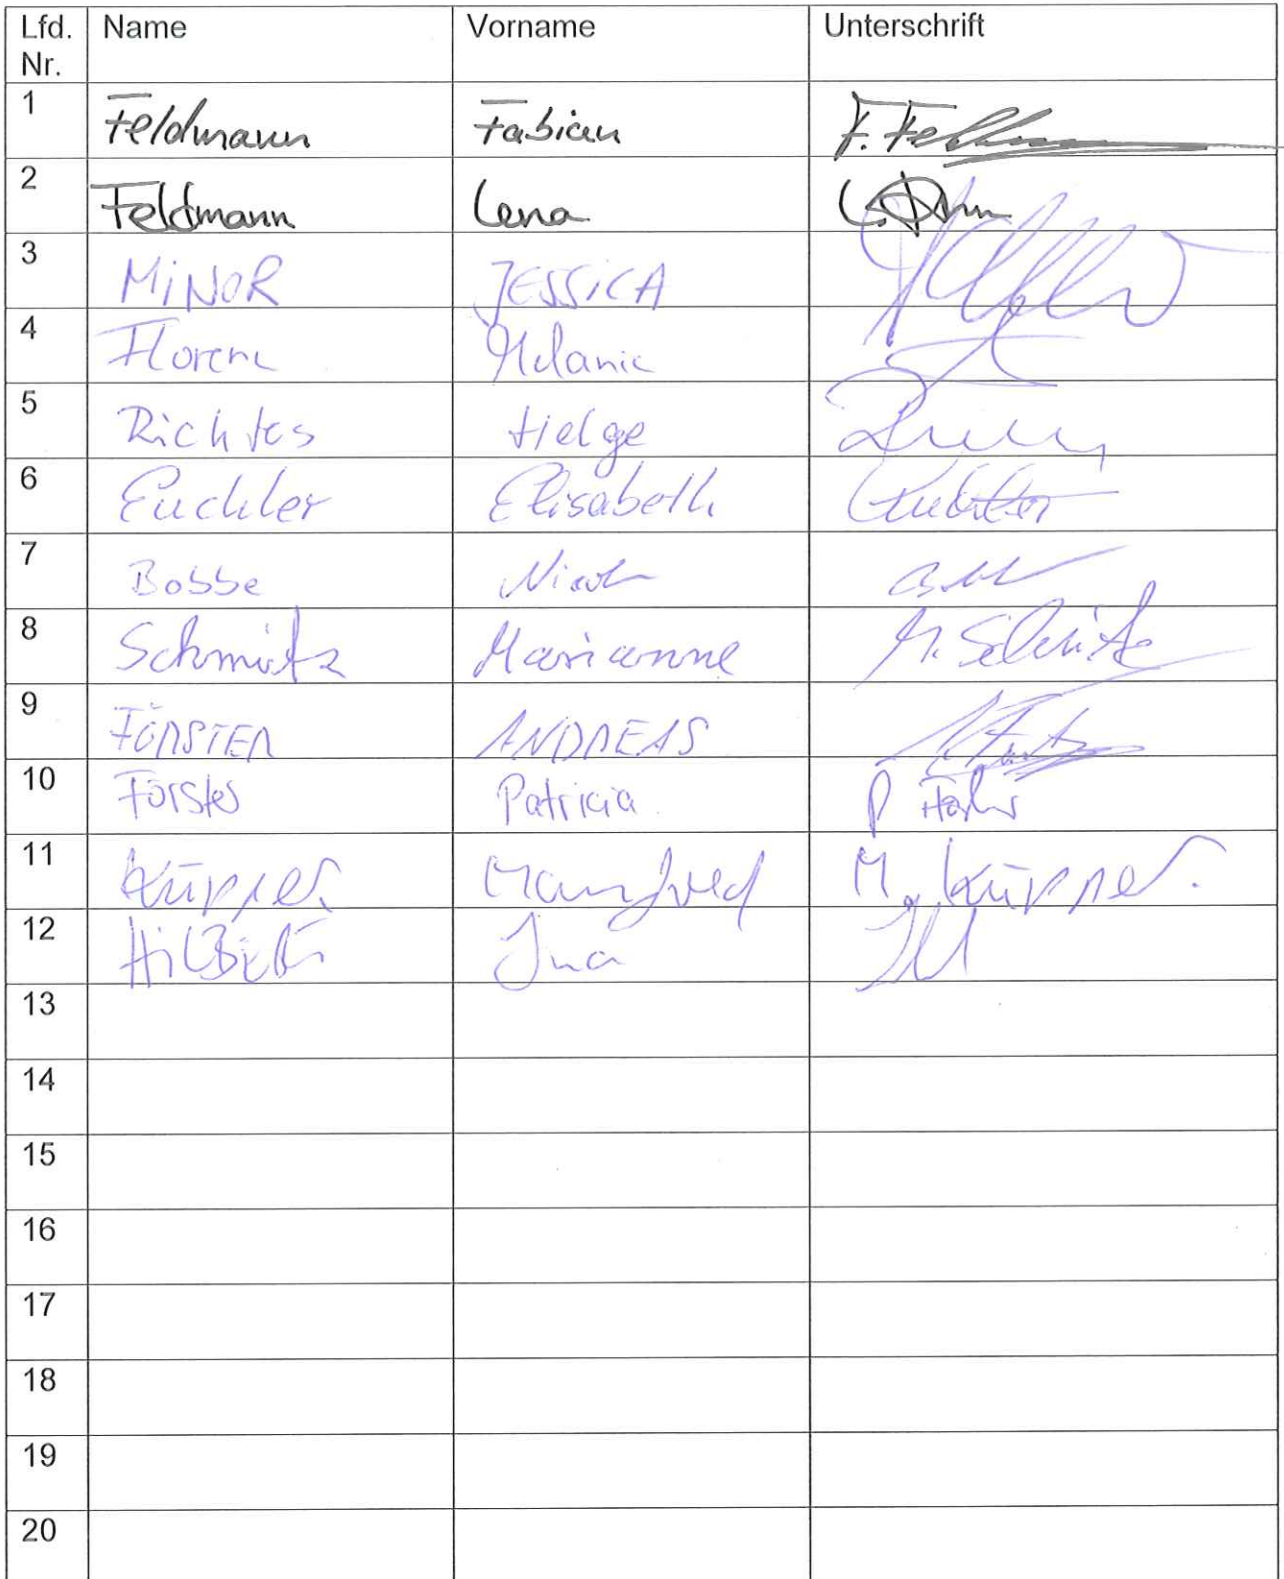 Lfd. Nr. Name Vorname Unterschrift
1 Feldmann Fabian F. Feldmann
2 Feldmann Lena
3 MiNOR JESSiCA
4 Melanie
5 Richter Helge
6 Euchler Elisabeth Euchler
7 Bobbe Nicole
8 Schmitz Marianne M. Schmitz
9 FÖRSTER ANDREAS
10 Förster Patricia P Förster
11 Küpper Manfred M. Küpper.
12 Ina
13
14
15
16
17
18
19
20